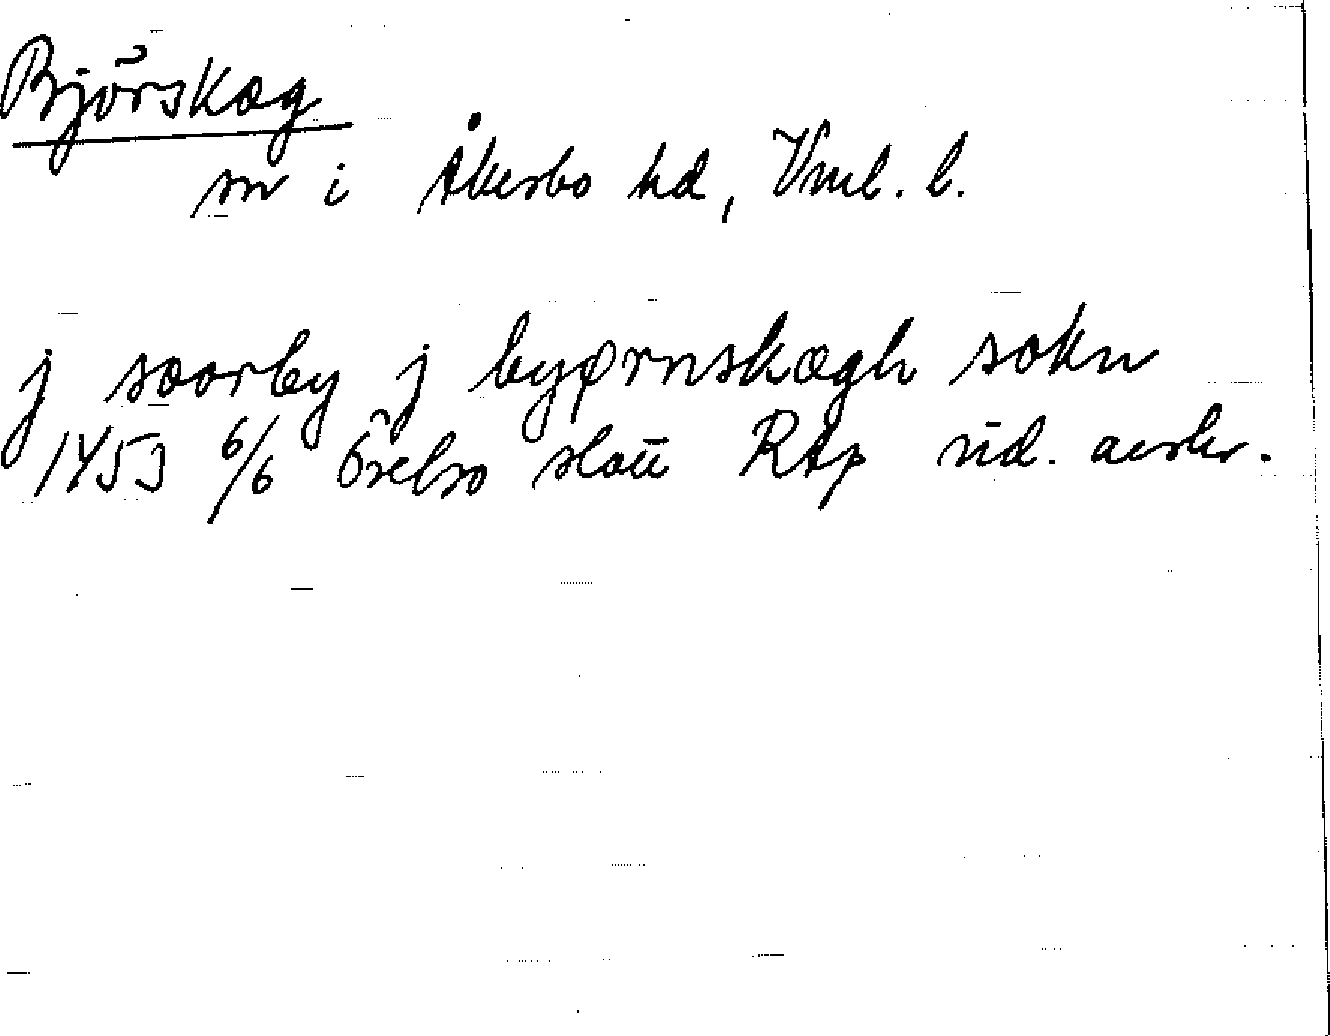 Björskog
sn i Åkerbo hd, Vml. l.
j soorby j byørnskogh sokn
1453 6/6 Örebro slott RAp vid. avskr.